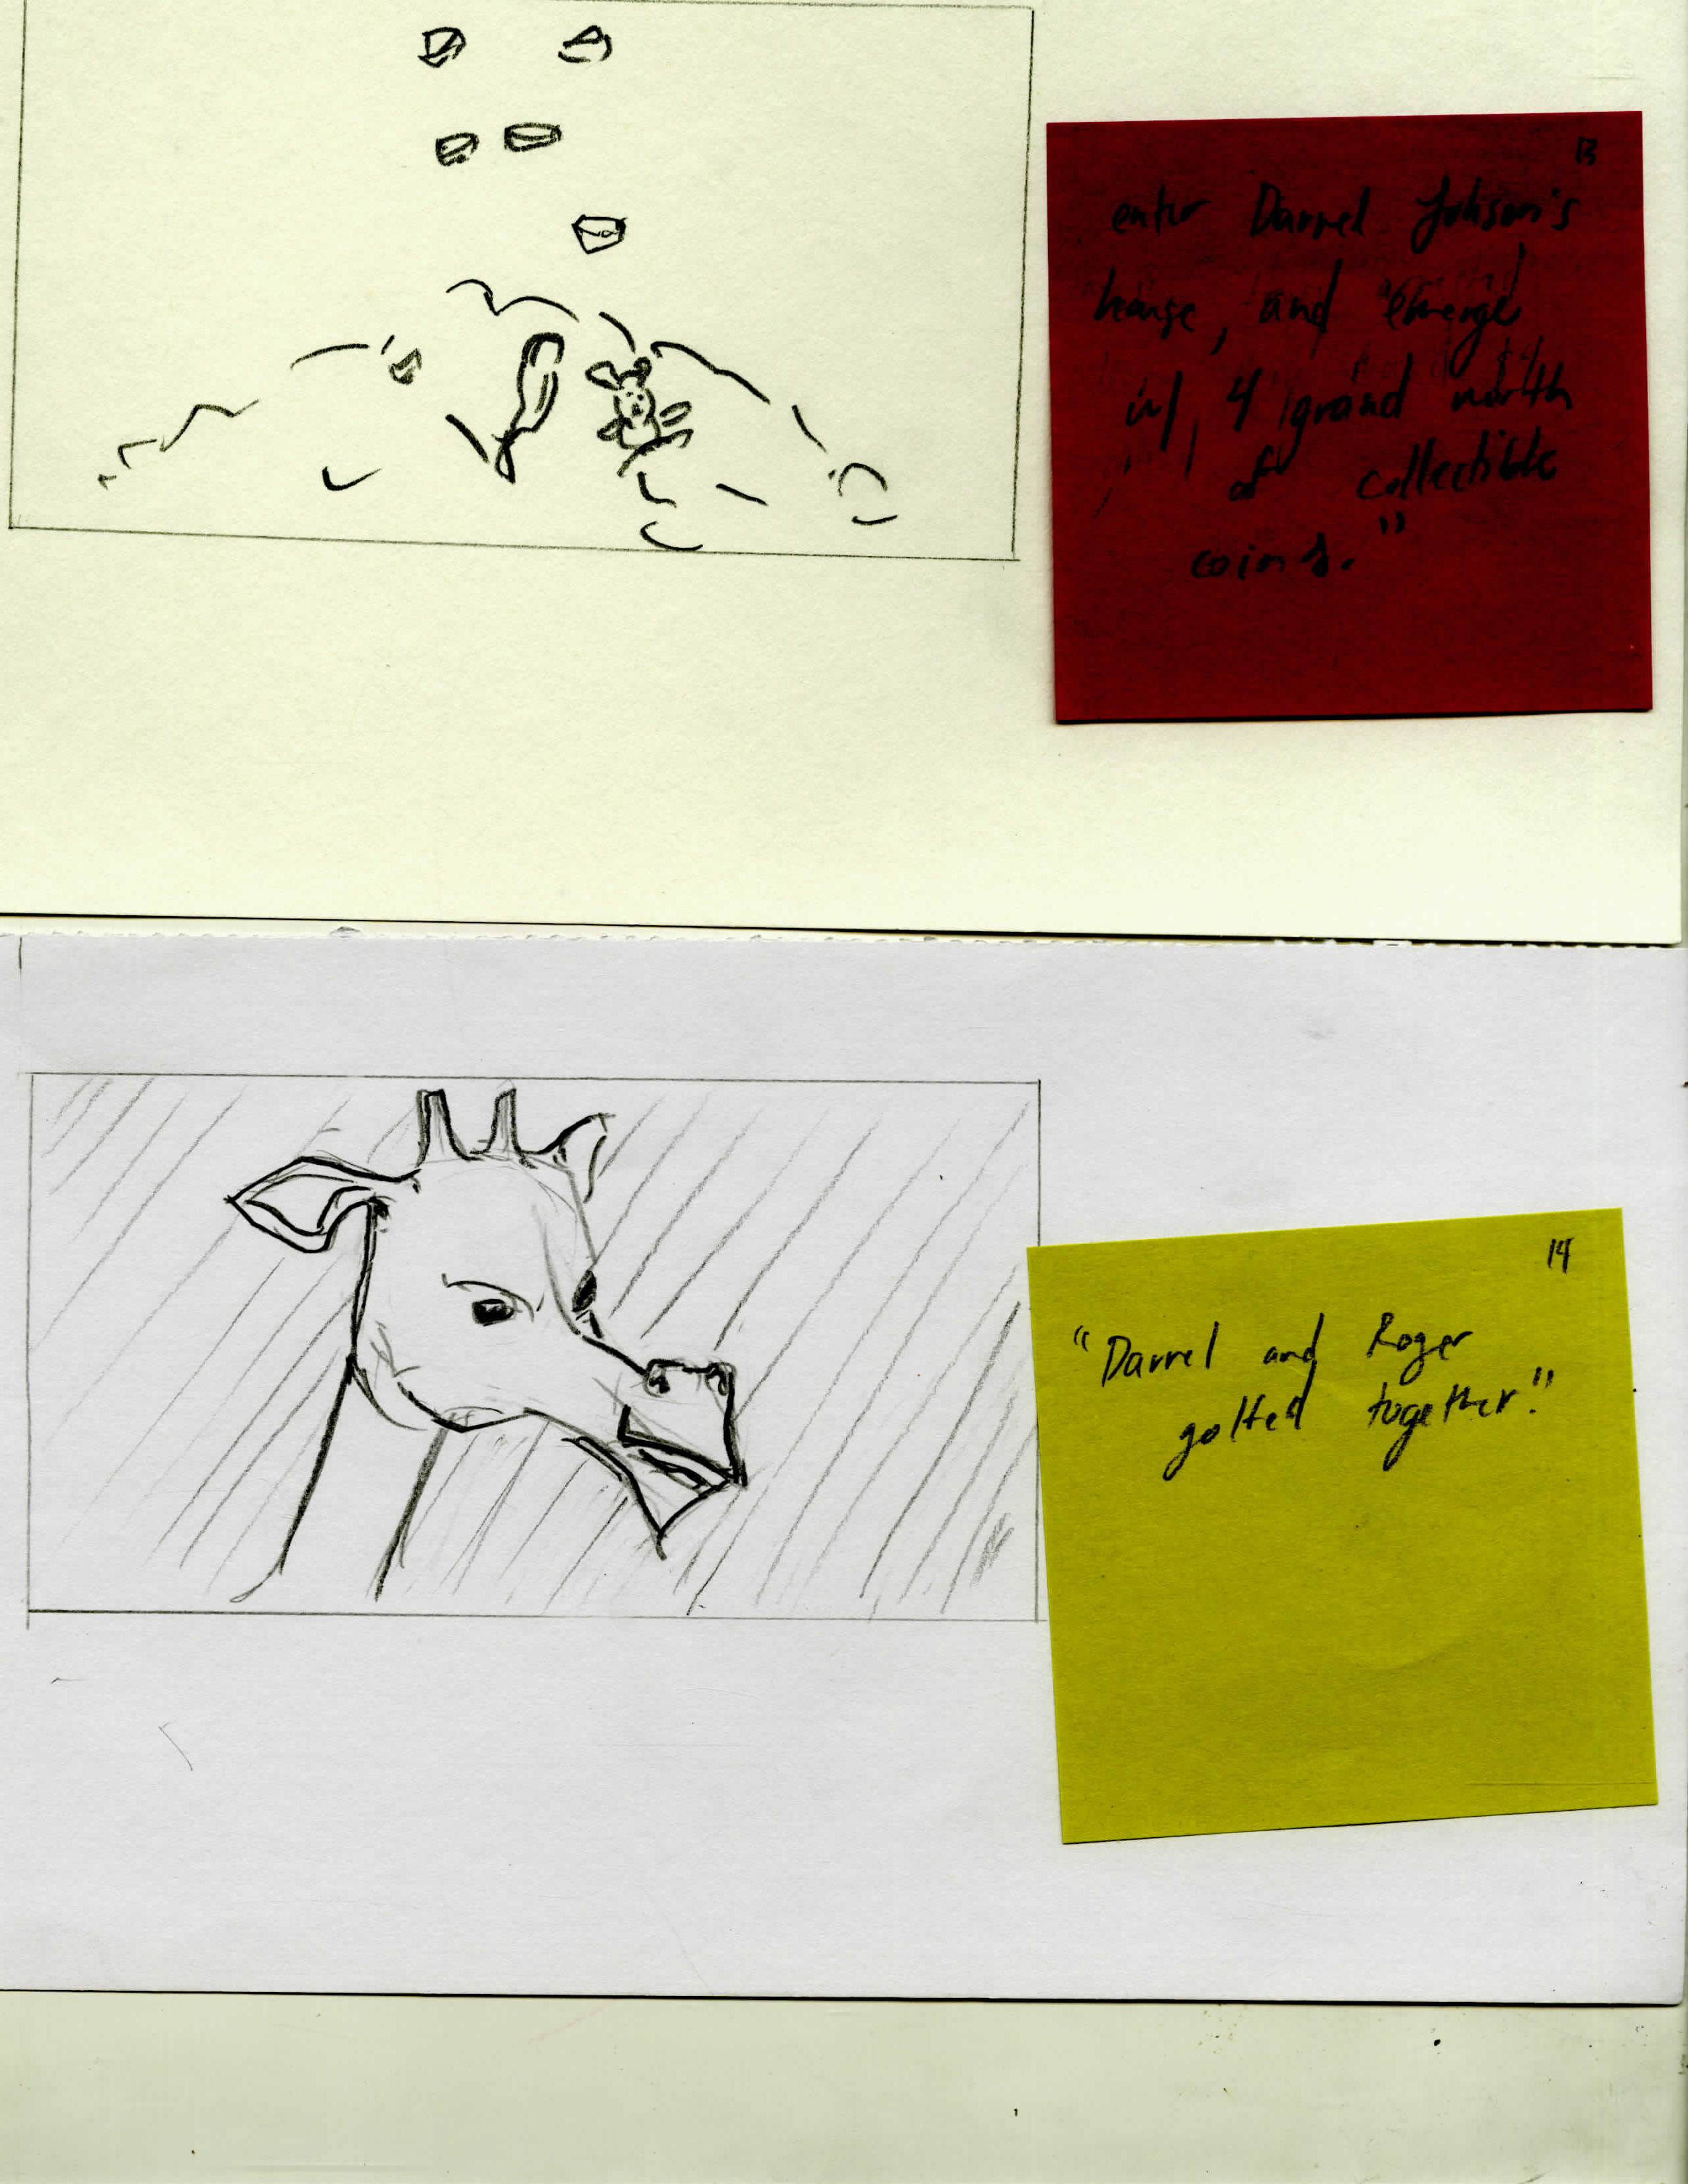 13
enter Darrel Johson's
house, and emerge
w/ 4 grand worth
of collectible
coins."
14
"Darrel and Roger
golfed together."